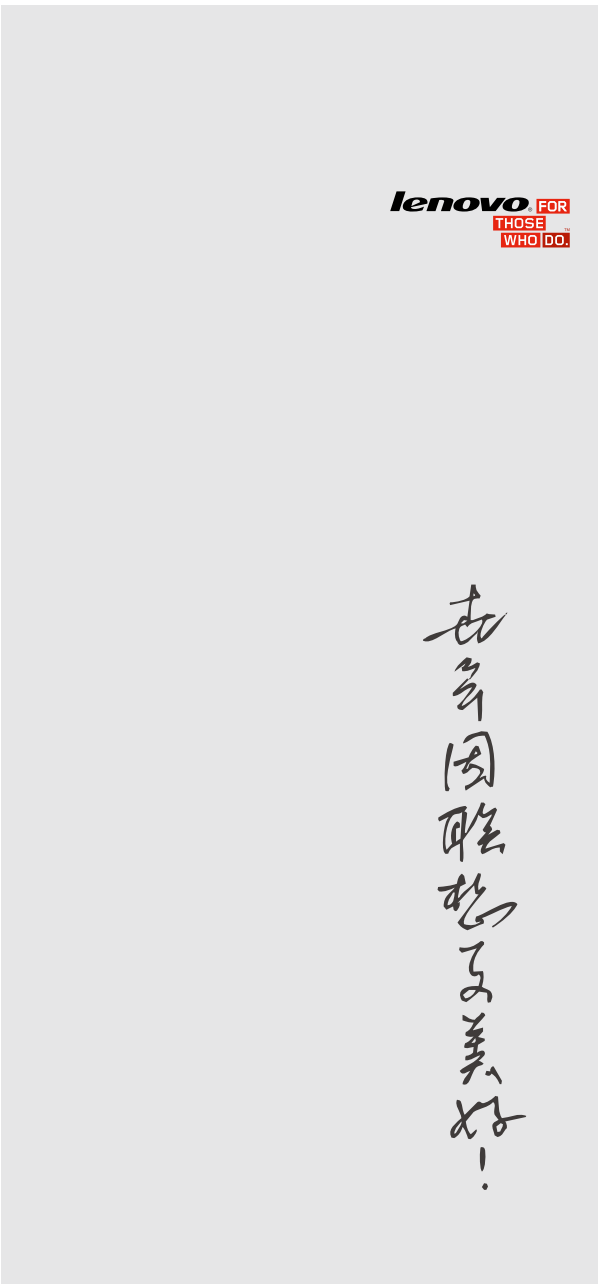 lenovo® FOR
THOSE
WHO DO.™
世界因联想更美好!